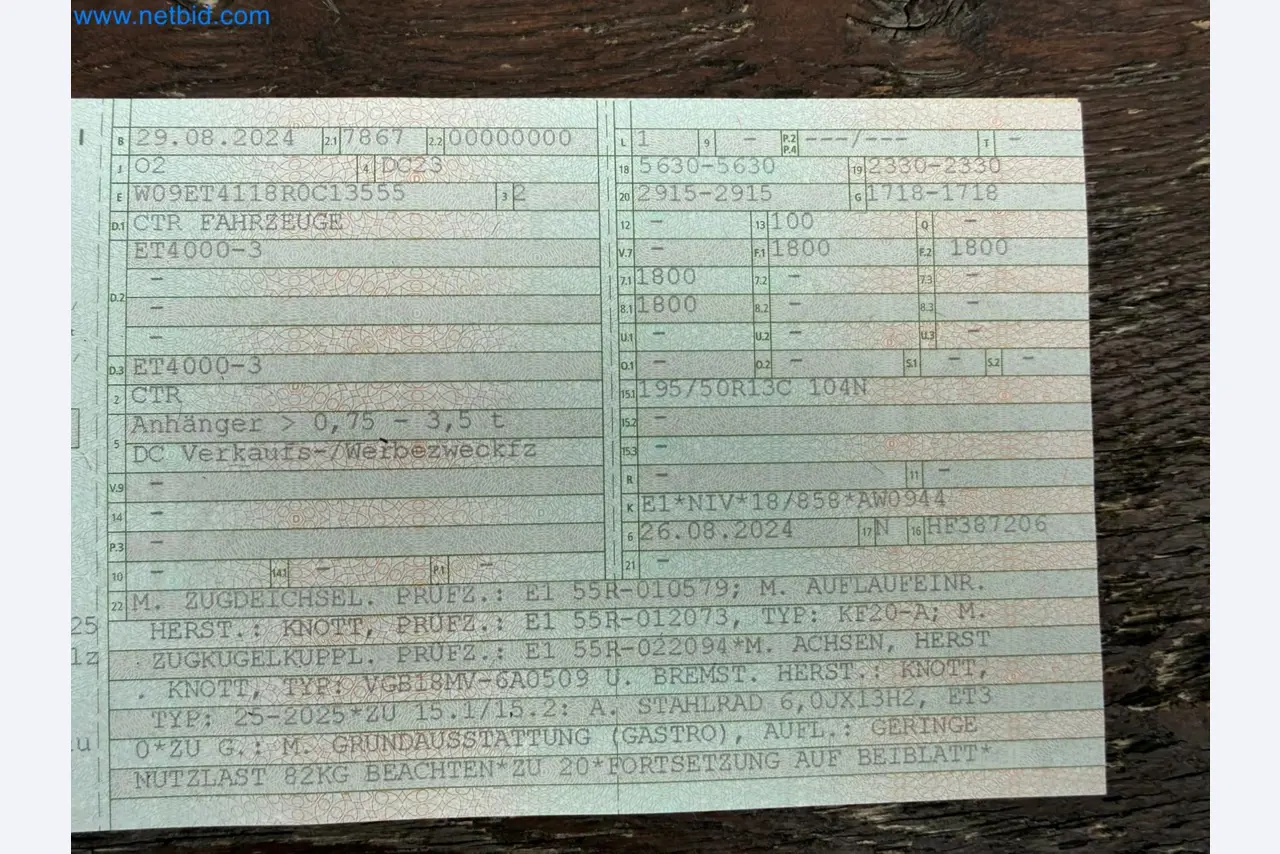 www.netbid.com
B 29.08.2024 2.1 7867 2.2 00000000 L 1 9 - P.2 P.4 ---/--- T -
J O2 4 DC23 18 5630-5630 19 2330-2330
E W09ET4118R0C13555 3 2 20 2915-2915 G 1718-1718
D.1 CTR FAHRZEUGE 12 - 13 100 Q -
ET4000-3 V.7 - F.1 1800 F.2 1800
D.2 - 7.1 1800 7.2 - 7.3 -
- 8.1 1800 8.2 - 8.3 -
- U.1 - U.2 - U.3 -
D.3 ET4000-3 O.1 - O.2 - S.1 - S.2 -
2 CTR 15.1 195/50R13C 104N
5 Anhänger > 0,75 - 3,5 t 15.2 -
DC Verkaufs-/Werbezweckfz 15.3 -
V.9 - R - 11 -
14 - K E1*NIV*18/858*AW0944
P.3 - 6 26.08.2024 17 N 16 HF387206
10 - 14.1 - P.1 - 21 -
22 M. ZUGDEICHSEL. PRÜFZ.: E1 55R-010579; M. AUFLAUFEINR.
25 HERST.: KNOTT, PRÜFZ.: E1 55R-012073, TYP: KF20-A; M.
lz ZUGKUGELKUPPL. PRÜFZ.: E1 55R-022094*M. ACHSEN, HERST
. KNOTT, TYP: VGB18MV-6A0509 U. BREMST. HERST.: KNOTT,
TYP: 25-2025*ZU 15.1/15.2: A. STAHLRAD 6,0JX13H2, ET3
0*ZU G.: M. GRUNDAUSSTATTUNG (GASTRO), AUFL.: GERINGE
NUTZLAST 82KG BEACHTEN*ZU 20*FORTSETZUNG AUF BEIBLATT*